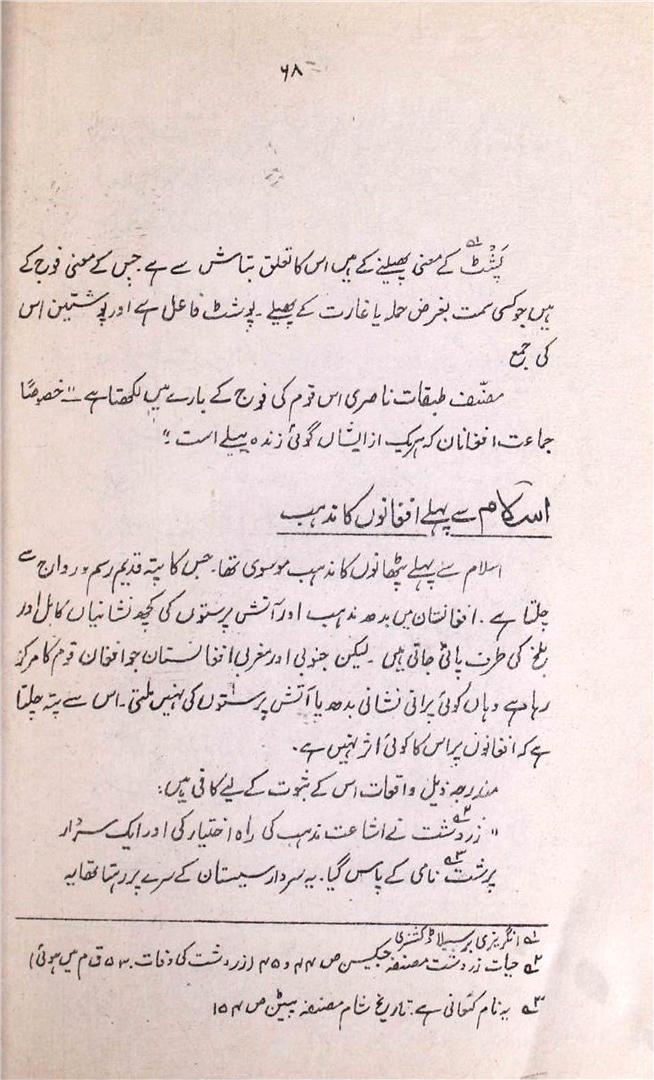 ۶۸
پَشْٹ؎۱ کے معنی پھیلنے کے ہیں اس کا تعلق بتاش سے ہے۔ جس کے معنی فوج کے
ہیں جو کسی سمت بغرض حملہ یا غارت کے پھیلے۔ پوشٹ فاعل ہے اور پوشتین اس
کی جمع
مصنّف طبقات ناصری اس قوم کی فوج کے بارے میں لکھتا ہے "خصوصًا
جماعت افغانان کہ ہریک از ایشاں گوئی زندہ پیلے است"
اسلام سے پہلے افغانوں کا مذہب
اسلام سے پہلے پٹھانوں کا مذہب موسوی تھا۔ جس کا پتہ قدیم رسم و رواج سے
چلتا ہے۔ افغانستان میں بدھ مذہب اور آتش پرستوں کی کچھ نشانیاں کابل اور
بلخ کی طرف پائی جاتی ہیں۔ لیکن جنوبی اور مغربی افغانستان جو افغان قوم کا مرکز
رہا ہے وہاں کوئی پرانی نشانی بدھ یا آتش پرستوں کی نہیں ملتی۔ اس سے پتہ چلتا
ہے کہ افغانوں پر اس کا کوئی اثر نہیں ہے۔
مندرجہ ذیل واقعات اس کے ثبوت کے لیے کافی ہیں:
"زردشت؎۲ نے اشاعت مذہب کی راہ اختیار کی اور ایک سردار
پرشت؎۳ نامی کے پاس گیا۔ یہ سردار سیستان کے سرے پر رہتا تھا یہ
؎۱ انگریزی ڈکشنری
؎۲ حیات زردشت مصنفہ جیکسن ص ۴۴ و ۴۵ (زردشت کی وفات ۵۳۰ ق م میں ہوئی)
؎۳ یہ نام کنعانی ہے۔ تاریخ شام مصنفہ ہیٹن ص ۱۵۴